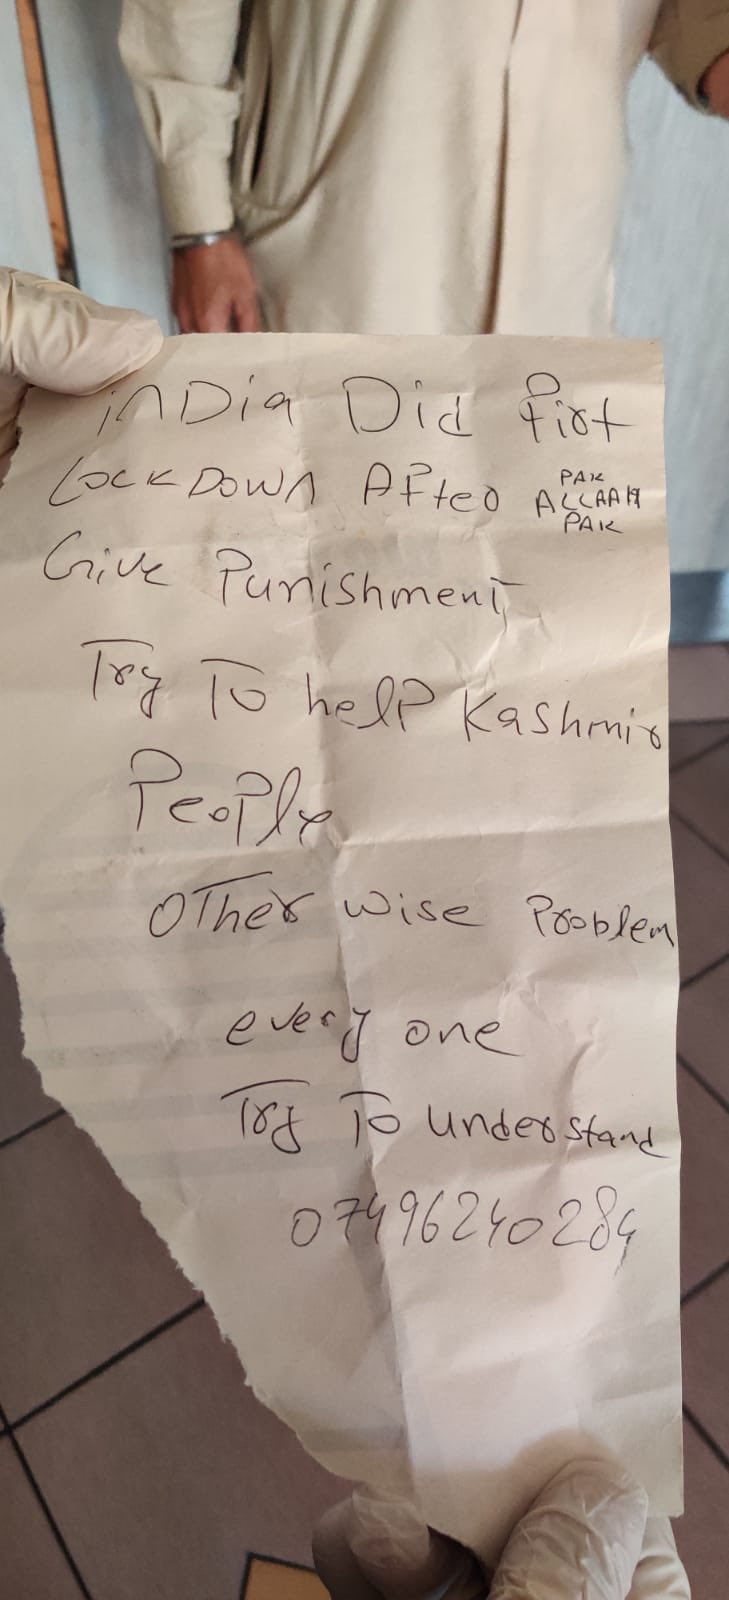 inDia Did first
LOCKDOWN After PAK
ALLAAH
PAK
Give Punishment
Try To help Kashmir
People
Other wise Problem
every one
Try To understand
07496240284